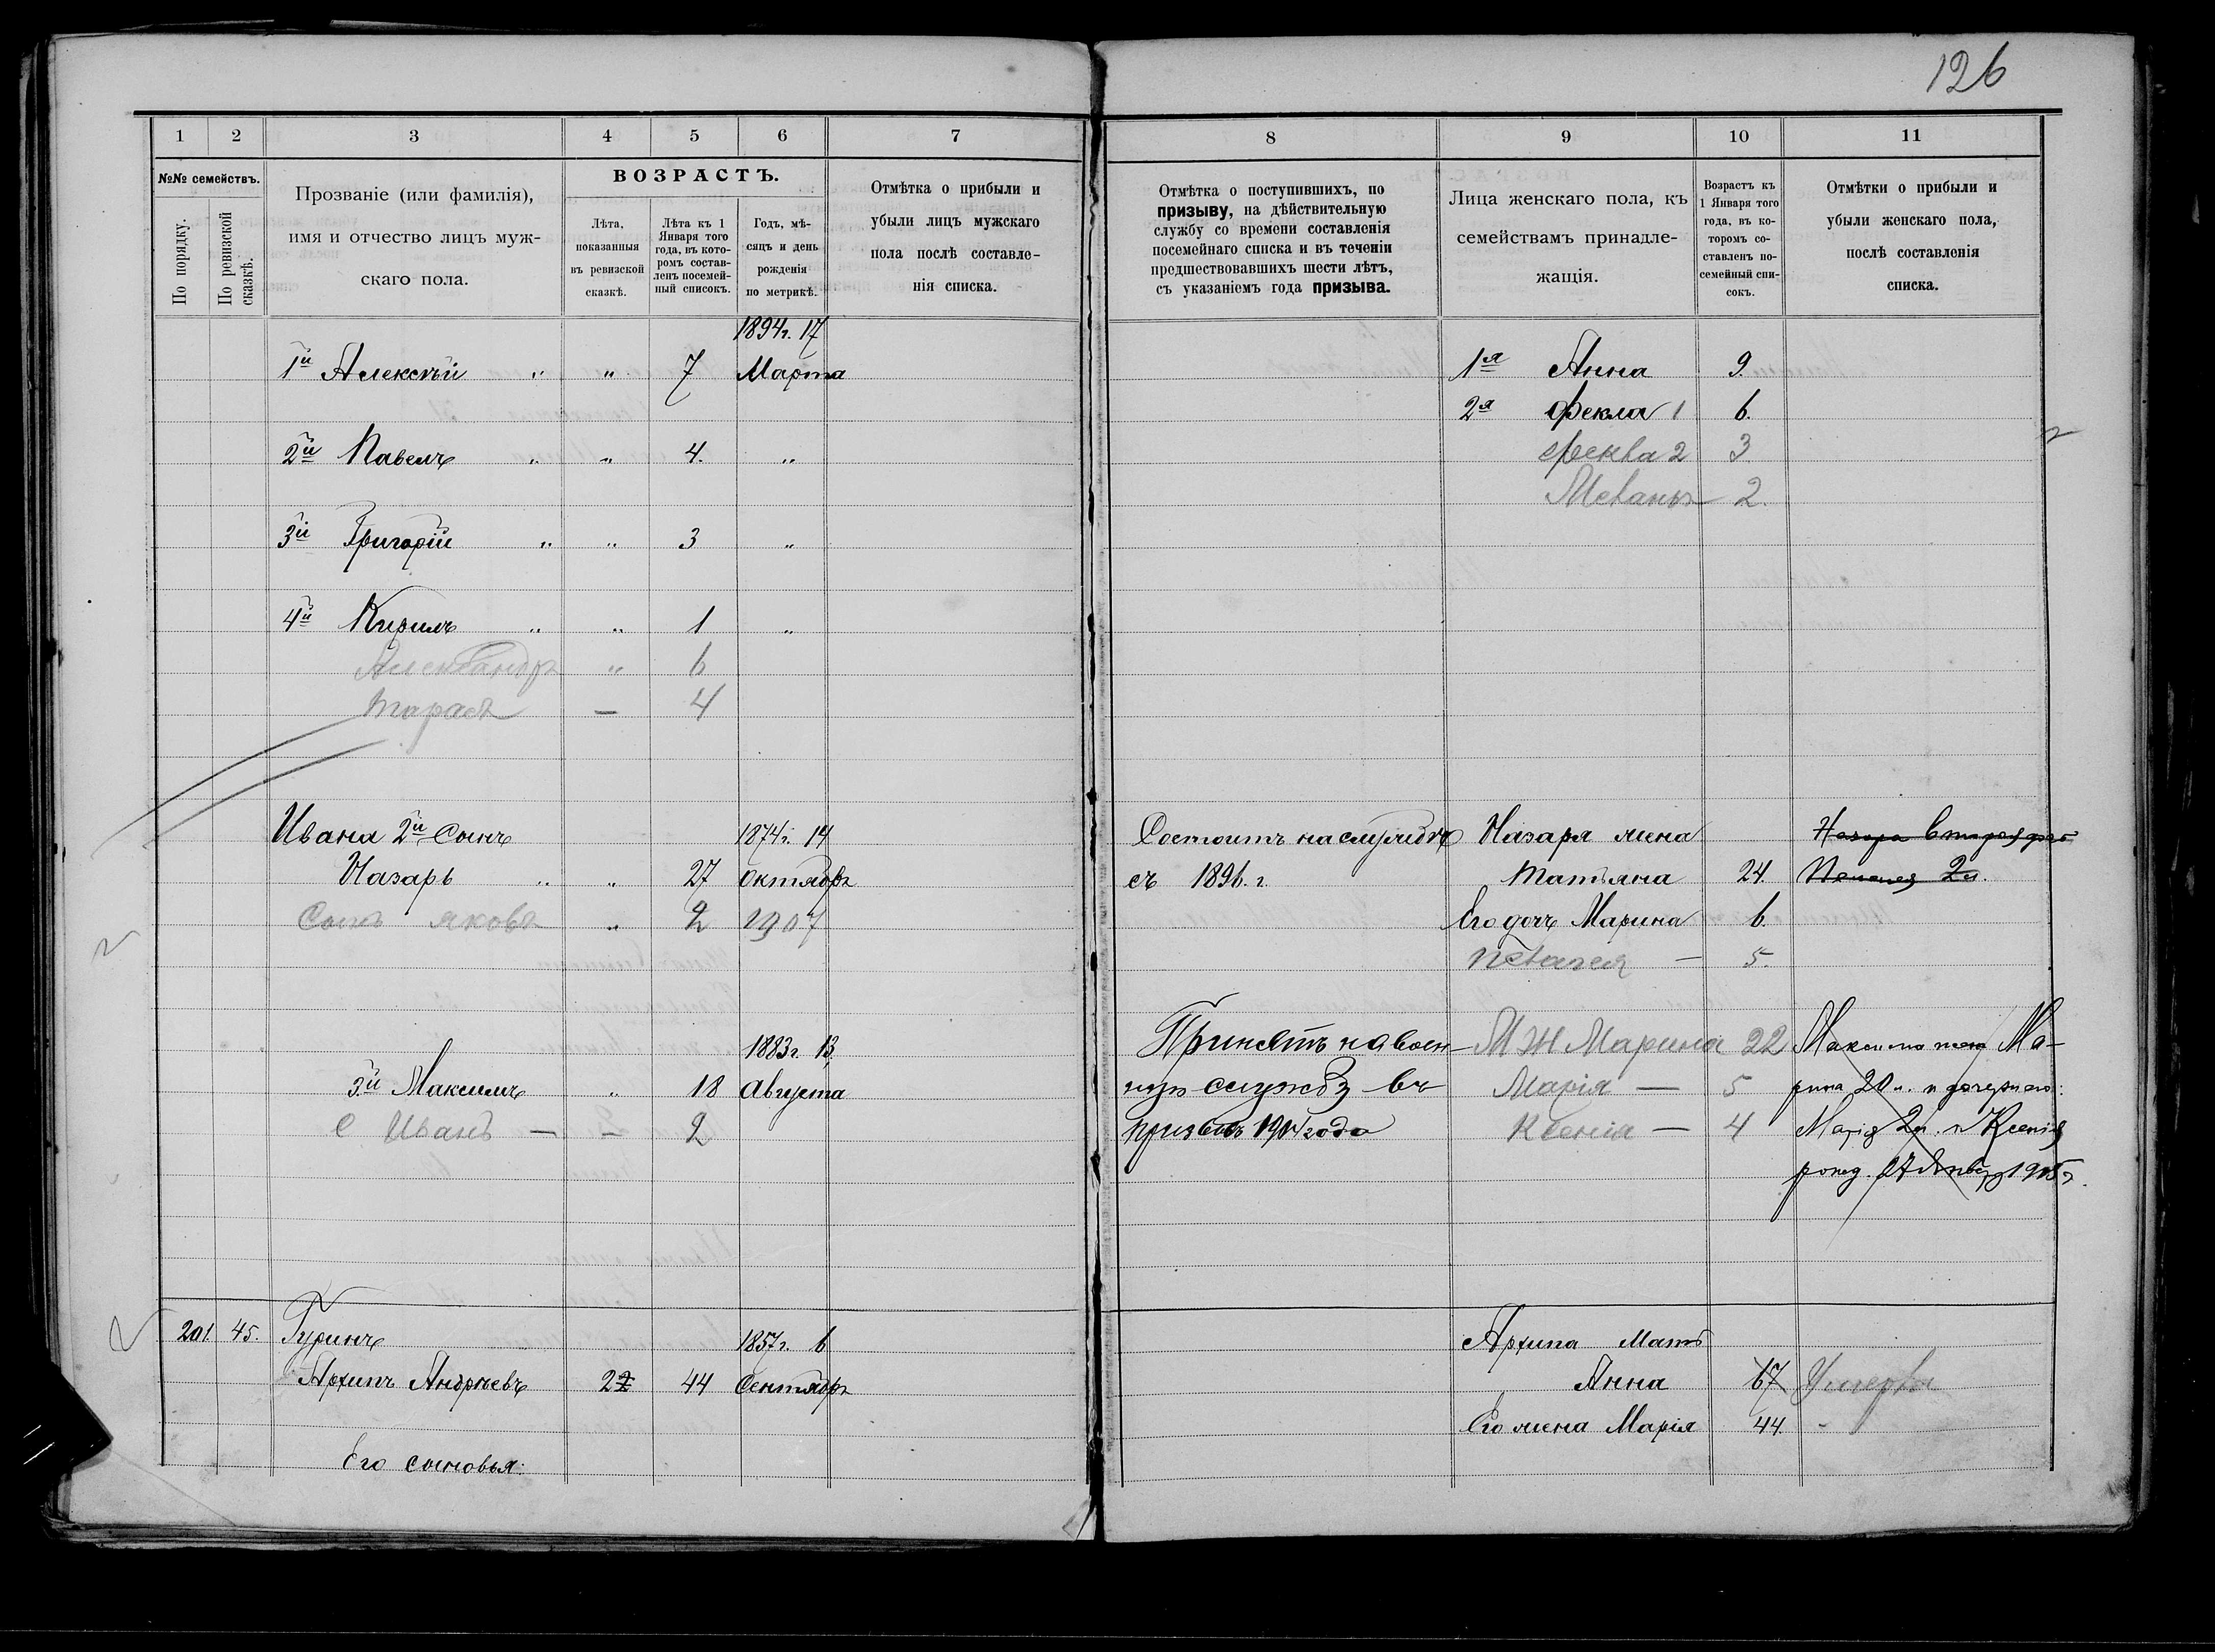 126
1 2 3 4 5 6 7
№№ семействъ.
По порядку.
По ревизской сказкѣ.
Прозваніе (или фамилія),
имя и отчество лицъ муж-
скаго пола.
ВОЗРАСТЪ.
Лѣта,
показанныя
въ ревизской
сказкѣ.
Лѣта къ 1
Января того
года, въ кото-
ромъ состав-
ленъ посемей-
ный списокъ.
Годъ, мѣ-
сяцъ и день
рожденія
по метрикѣ.
Отмѣтка о прибыли и
убыли лицъ мужскаго
пола послѣ составле-
нія списка.
1894г. 17
1й Алексѣй " " 7 Марта
2й Павелъ " " 4. "
3й Григорій " " 3 "
4й Кирилъ " " 1 "
Александръ " 6
Тарасъ — 4
Ивана 2й Сынъ 1874г. 14
Назарь " " 27 Октября
Сынъ Яковъ " 2 1907
1883г. 13
3й Максимъ " 18 Августа
С Иванъ — — 2
201 45. Гуринъ 1857г. 6
Архипъ Андреевъ 22 44 Сентября
Его сыновья:
8 9 10 11
Отмѣтка о поступившихъ, по
призыву, на дѣйствительную
службу со времени составленія
посемейнаго списка и въ теченіи
предшествовавшихъ шести лѣтъ,
съ указаніемъ года призыва.
Лица женскаго пола, къ
семействамъ принадле-
жащія.
Возрастъ къ
1 Января того
года, въ ко-
торомъ со-
ставленъ по-
семейный спи-
сокъ.
Отмѣтки о прибыли и
убыли женскаго пола,
послѣ составленія
списка.
1я Анна 9.
2я Фекла 1 6.
Фекла 2 3
2.
Состоитъ на службѣ Назаря жена Назара
съ 1896. г. Татьяна 24. Пелагея 2л.
Его дочь Марина 6.
Пелагея — 5.
Принятъ на воен- М Ж Марина 22 Максима жена Ма-
ную службу въ Марія — 5 рина 20 л. и дочери его:
призывъ 1904 года Ксенія — 4 Марія 2л. и Ксенія
рожд. 1905г.
Архипа мать
Анна 67 Умерла
Его жена Марія 44. -